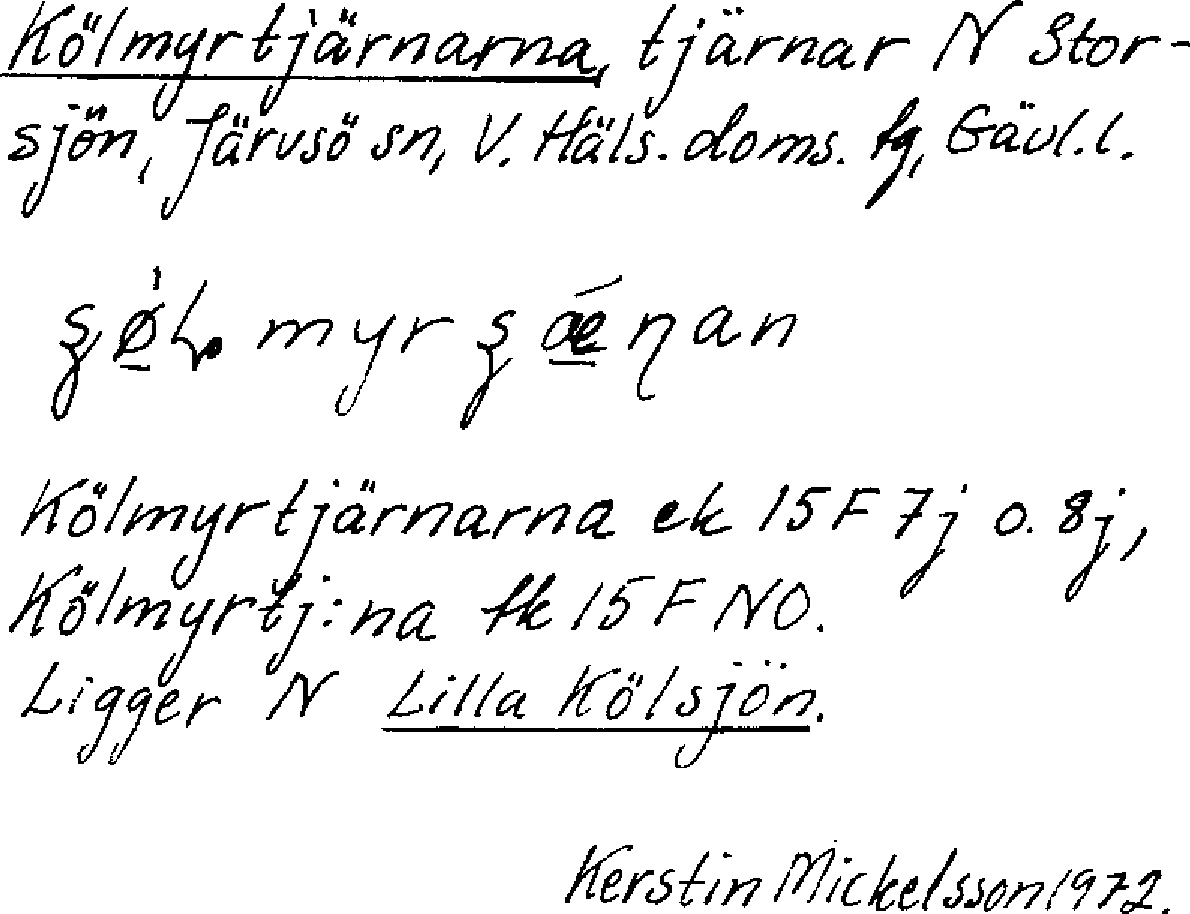 Kölmyrtjärnarna, tjärnar N Stor-
sjön, Järvsö sn, V. Häls. doms. fg, Gävl. l.
myr
Kölmyrtjärnarna ek 15F 7j o. 8j,
Kölmyrtj:na tk 15F NO.
Ligger N Lilla Kölsjön.
Kerstin Mickelsson 1972.